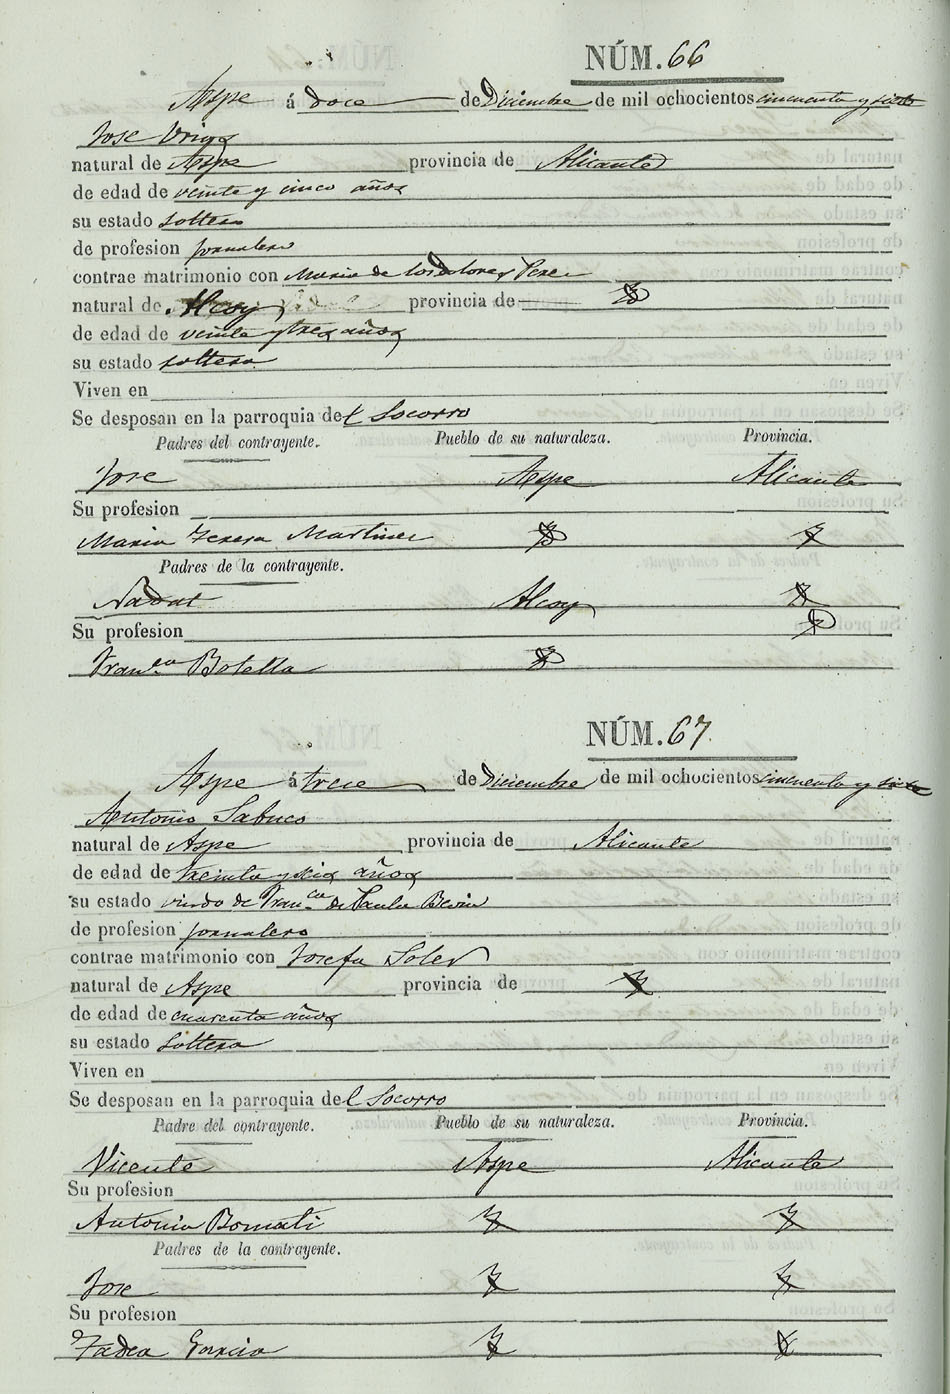 NÚM. 66
Aspe á doce de Diciembre de mil ochocientos cincuenta y siete
Jose
natural de Aspe provincia de Alicante
de edad de veinte y cinco años
su estado soltero
de profesion jornalero
contrae matrimonio con Maria de los Dolores Perez
natural de Alcoy provincia de
de edad de veinte y tres años
su estado soltera
Viven en
Se desposan en la parroquia del Socorro
Padres del contrayente. Pueblo de su naturaleza. Provincia.
Jose Aspe Alicante
Su profesion
Maria Teresa Martinez
Padres de la contrayente.
Nadal Alcoy
Su profesion
Fran.ca Botella
NÚM. 67
Aspe á trece de Diciembre de mil ochocientos cincuenta y siete
Antonio Sabuco
natural de Aspe provincia de Alicante
de edad de treinta y seis años
su estado viudo de Fran.ca de Paula
de profesion jornalero
contrae matrimonio con Josefa Soler
natural de Aspe provincia de
de edad de cuarenta años
su estado soltera
Viven en
Se desposan en la parroquia del Socorro
Padre del contrayente. Pueblo de su naturaleza. Provincia.
Vicente Aspe Alicante
Su profesion
Antonia Bomati
Padres de la contrayente.
Jose
Su profesion
Tadea Garcia